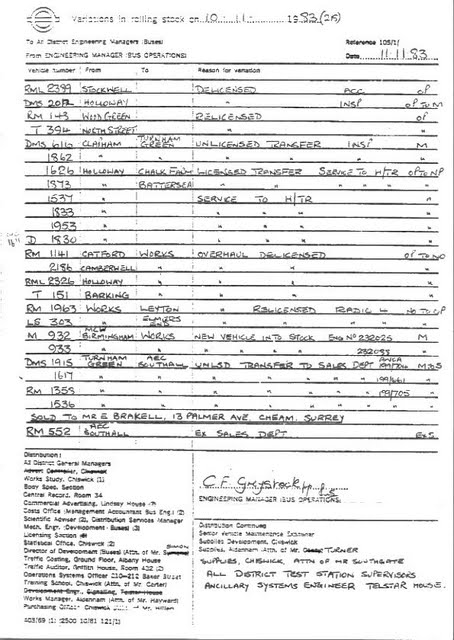 Variations in rolling stock on 10 . 11 . 1983 (26)
To All District Engineering Managers (Buses)
Reference 105/1/
From ENGINEERING MANAGER (BUS OPERATIONS)
Date 11.11.83
Vehicle number From To Reason for variation
RML 2399 STOCKWELL DELICENSED ACC OP
DMS 2012 HOLLOWAY " INSP OP TO M
RM 143 WOOD GREEN RELICENSED OP
T 394 NORTH STREET " "
DMS 616 CLAPHAM TURNHAM GREEN UNLICENSED TRANSFER INSP M
1862 " " " " " "
1626 HOLLOWAY CHALK FARM LICENSED TRANSFER SERVICE TO H/TR OP TO NP
1873 " BATTERSEA " " " " " "
1537 " " SERVICE TO H/TR "
1833 " " " " " "
1953 " " " " " "
D 1830 " " " " " "
RM 1141 CATFORD WORKS OVERHAUL DELICENSED OP TO NO
2186 CAMBERWELL " " " "
RML 2326 HOLLOWAY " " " "
T 151 BARKING " " " "
RM 1963 WORKS LEYTON " RELICENSED NO TO OP
LS 303 " ELMERS END " " "
M 932 MCW BIRMINGHAM WORKS NEW VEHICLE INTO STOCK ENG No 232025 M
933 " " " " " " 232088 "
DMS 1915 TURNHAM GREEN AEC SOUTHALL UNLSD TRANSFER TO SALES DEPT
1617 " " " " " " 199/661 "
RM 1358 " " " " " " "
1536 " " " " " " 199/705 "
SOLD TO MR E BRAKELL, 13 PALMER AVE, CHEAM, SURREY
RM 552 AEC SOUTHALL EX SALES DEPT
Distribution:
All District General Managers
Advert Controller, Chiswick
Works Study, Chiswick (1)
Body Spec. Section
Central Record, Room 34
Commercial Advertising, Lindsey House
Costs Office (Management Accountant Bus Eng.) (2)
Scientific Adviser (2), Distribution Services Manager
Mech. Engr. (Development - Buses) (3)
Licensing Section
Statistical Office, Chiswick (2)
Director of Development (Buses) (Attn. of Mr.
Traffic Costing, Ground Floor, Albany House
Traffic Auditor, Griffith House, Room 432 (2)
Operations Systems Officer 210-212 Baker Street
Training School, Chiswick (Attn. of Mr Carter)
Development Engr., Signalling, Telstar House
Works Manager, Aldenham (Attn. of Mr. Hayward)
Purchasing Officer Chiswick
403/69 (1: 2500 10/81 121/1)
C.F. Greystock
ENGINEERING MANAGER (BUS OPERATIONS)
Distribution Continued
Senior Vehicle Maintenance Examiner
Supplies Development, Chiswick
Supplies, Aldenham (Attn. of Mr. TURNER
SUPPLIES, CHISWICK, ATTN OF MR SOUTHGATE
ALL DISTRICT TEST STATION SUPERVISORS
ANCILLARY SYSTEMS ENGINEER TELSTAR HOUSE.